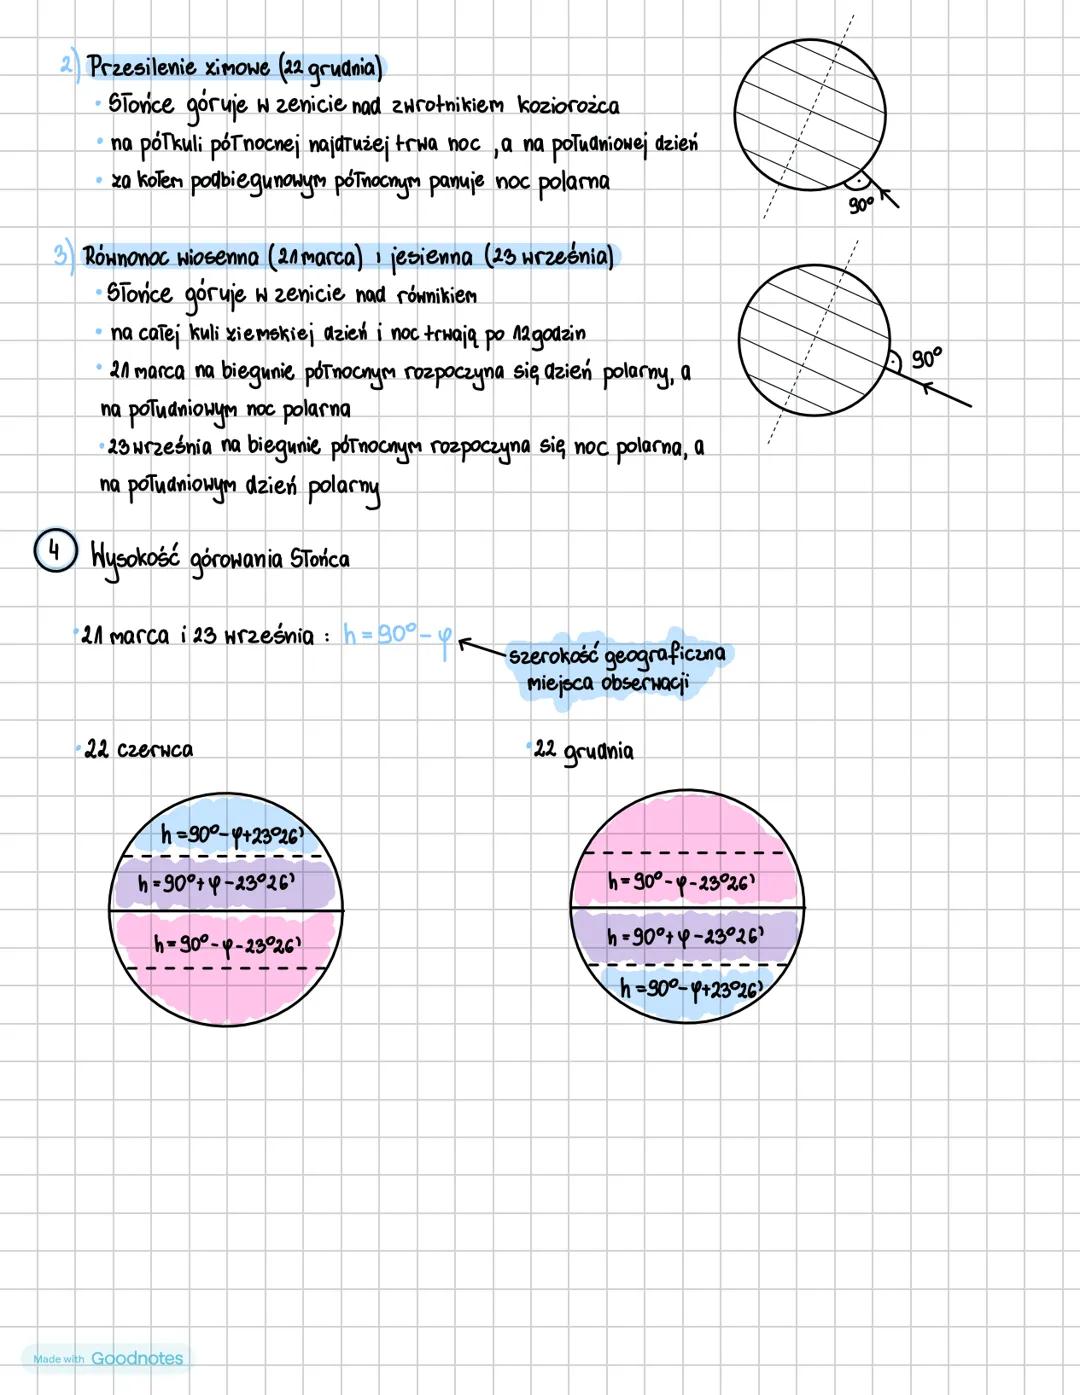 2) Przesilenie zimowe (22 grudnia)
• Słońce góruje w zenicie nad zwrotnikiem koziorożca
• na półkuli północnej najdłużej trwa noc, a na południowej dzień
• za kołem podbiegunowym północnym panuje noc polarna
90°
3) Równonoc wiosenna (21 marca) i jesienna (23 września)
• Słońce góruje w zenicie nad równikiem
• na całej kuli ziemskiej dzień i noc trwają po 12 godzin
• 21 marca na biegunie północnym rozpoczyna się dzień polarny, a
na południowym noc polarna
• 23 września na biegunie północnym rozpoczyna się noc polarna, a
na południowym dzień polarny
90°
4 Wysokość górowania Słońca
• 21 marca i 23 września : h = 90° - φ
szerokość geograficzna
miejsca obserwacji
• 22 czerwca
h = 90° - φ + 23°26'
h = 90° + φ - 23°26'
h = 90° - φ - 23°26'
• 22 grudnia
h = 90° - φ - 23°26'
h = 90° + φ - 23°26'
h = 90° - φ + 23°26'
Made with Goodnotes